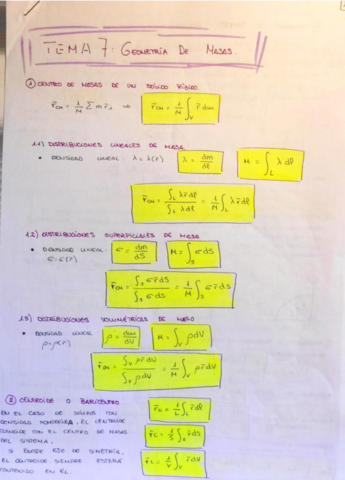 TEMA 7: GEOMETRÍA DE MASAS.
① CENTRO DE MASAS DE UN SÓLIDO RÍGIDO
r̄cm = 1/M Σ m r̄i ⇒ r̄cm = 1/M ∫v r̄ dm
1.1) DISTRIBUCIONES LINEALES DE MASA
• DENSIDAD LINEAL λ = λ(r̄) λ = dm/dl M = ∫L λ dl
r̄cm = ∫L λ r̄ dl / ∫L λ dl = 1/M ∫L λ r̄ dl
1.2) DISTRIBUCIONES SUPERFICIALES DE MASA
• DENSIDAD LINEAL: σ = dm/dS M = ∫S σ dS
σ = σ(r̄)
r̄cm = ∫S σ r̄ dS / ∫S σ dS = 1/M ∫S σ r̄ dS
1.3) DISTRIBUCIONES VOLUMÉTRICAS DE MASA
• DENSIDAD LINEAL ρ = dm/dV M = ∫V ρ dV
ρ = ρ(r̄)
r̄cm = ∫V ρ r̄ dV / ∫V ρ dV = 1/M ∫V ρ r̄ dV
② CENTROIDE O BARICENTRO
EN EL CASO DE SÓLIDOS CON r̄c = 1/L ∫L r̄ dl
DENSIDAD HOMOGÉNEA, EL CENTROIDE
COINCIDE CON EL CENTRO DE MASAS r̄c = 1/S ∫S r̄ dS
DEL SISTEMA.
SI EXISTE EJE DE SIMETRÍA, r̄c = 1/V ∫V r̄ dV
EL CENTROIDE SIEMPRE ESTARÁ
CONTENIDO EN ÉL.